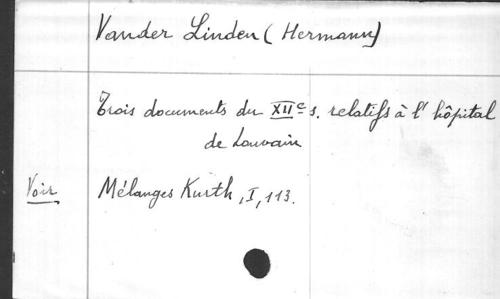 Vander Linden (Hermann)
Trois documents du XIIe s. relatifs à l'hôpital
de Louvain
Voir Mélanges Kurth, I, 113.